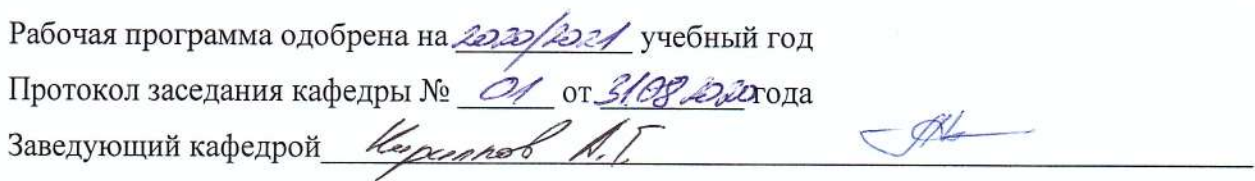 Рабочая программа одобрена на 2020/2021 учебный год
Протокол заседания кафедры № 01 от 31.08.2020 года
Заведующий кафедрой А.Г.